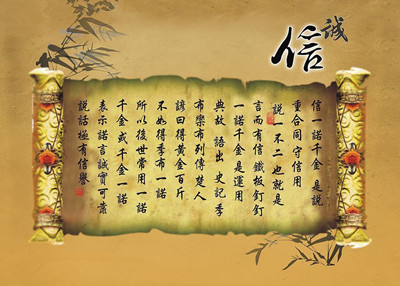 誠信
信一諾千金 是說
重合同守信用
說一不二也就是
言而有信 鐵板釘釘
一諾千金是運用
典故 語出 史記季
布欒布列傳楚人
諺曰得黃金百斤
不如得季布一諾
所以後世常用一諾
千金或千金一諾
表示諾言誠實可靠
說話極有信譽